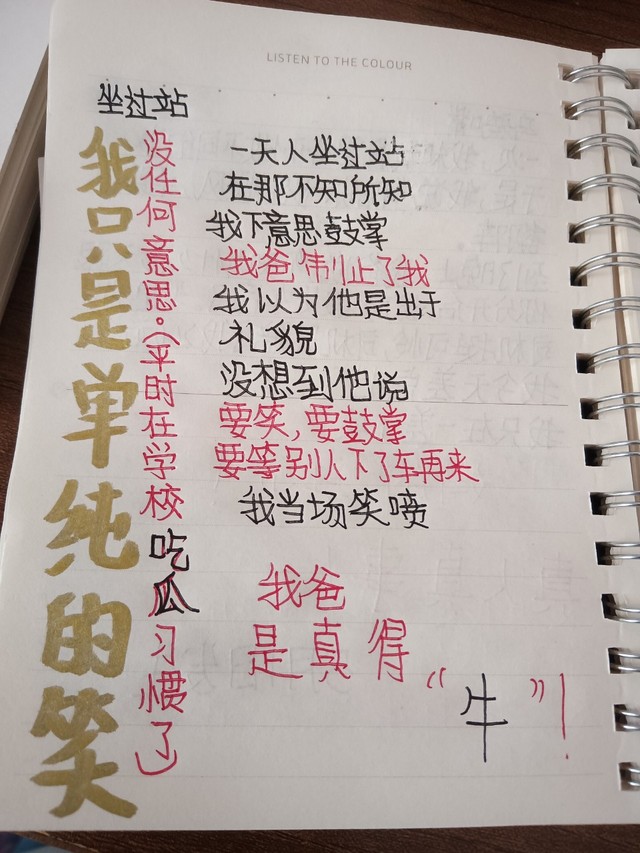 LISTEN TO THE COLOUR
坐过站
我只是单纯的笑
没任何意思。(平时在学校吃瓜习惯了)
一天人坐过站
在那不知所知
我下意思鼓掌
我爸制止了我
我以为他是出于
礼貌
没想到他说
要笑，要鼓掌
要等别人下了车再来
我当场笑喷
我爸
是真得
“牛”！